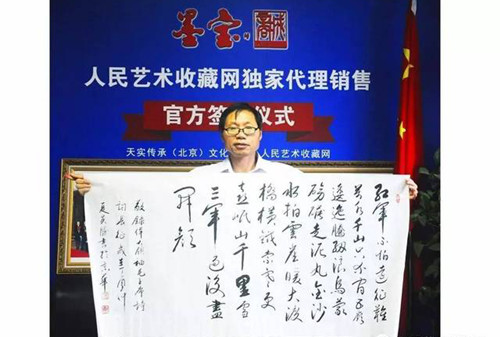 墨宝
人民艺术收藏网独家代理销售
官方签 仪式
天实传承（北京）文化 人民艺术收藏网
红军不怕远征难
万水千山只等闲五岭
逶迤腾细浪乌蒙
磅礴走泥丸金沙
水拍云崖暖大渡
桥横铁索寒更
喜岷山千里雪
三军过后尽
开颜
敬录伟大领袖毛主席诗
词长征